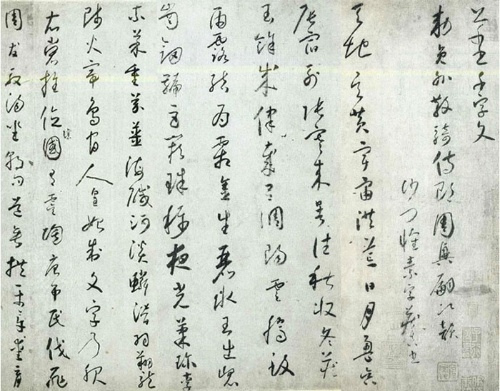 千字文
勅員外散騎侍郎周興嗣次韻
沙門懷素字藏真
天地玄黃宇宙洪荒日月盈昃
辰宿列張寒來暑往秋收冬藏
閏餘成歲律呂調陽雲騰致
雨露結為霜金生麗水玉出崑
崗劍號巨闕珠稱夜光菓珍李
柰菜重芥薑海鹹河淡鱗潛羽翔龍
師火帝鳥官人皇始制文字乃服
衣裳推位讓國有虞陶唐弔民伐罪
周發殷湯坐朝問道垂拱平章愛育